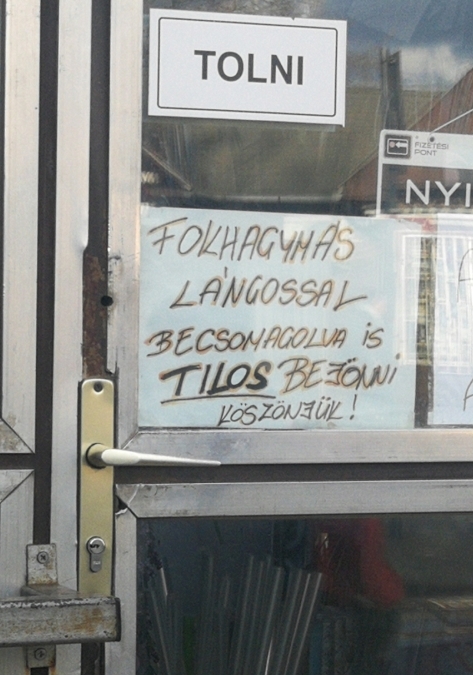 TOLNI
FIZETÉSI
PONT
NYI
FOKHAGYMÁS
LÁNGOSSAL
BECSOMAGOLVA is
TILOS BEJÖNNI
KÖSZÖNJÜK!